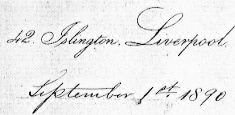 42. Islington. Liverpool.
September 1st 1890